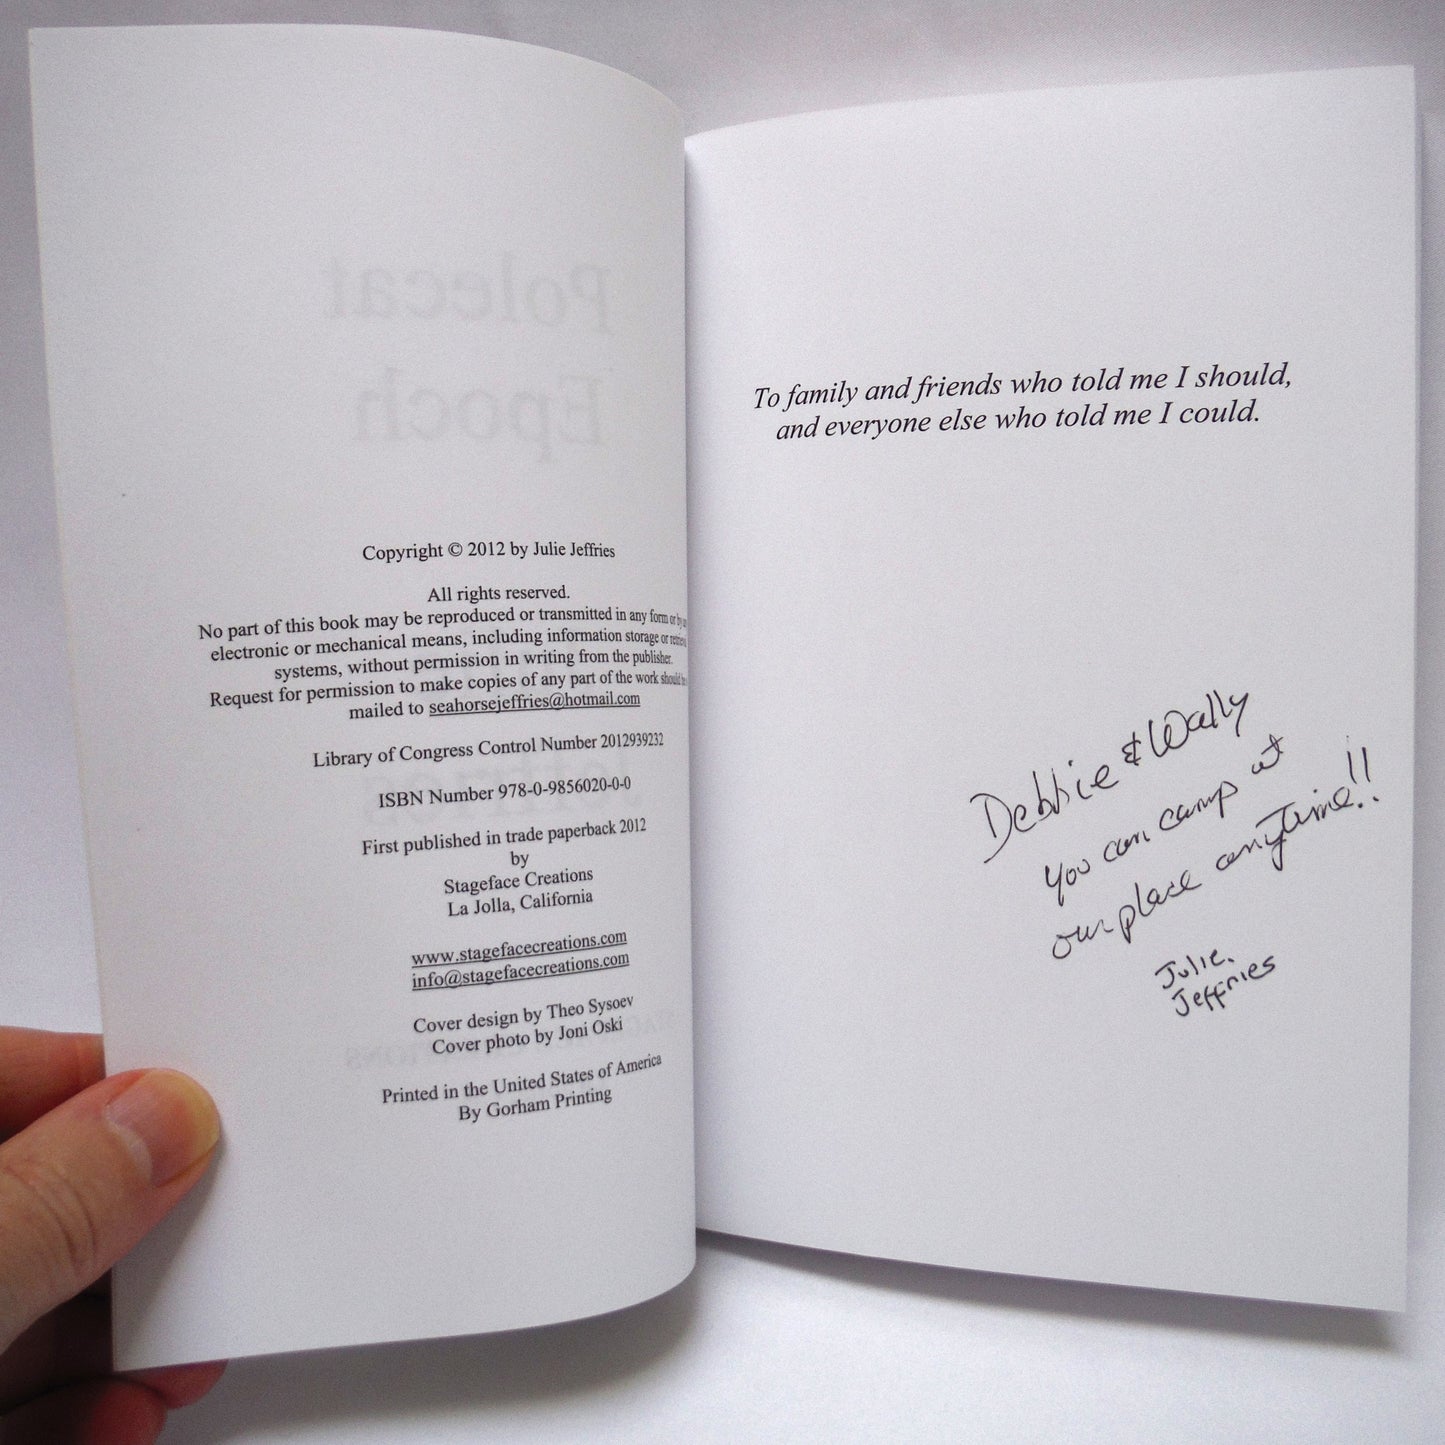 Polecat
Epoch
Copyright © 2012 by Julie Jeffries
All rights reserved.
No part of this book may be reproduced or transmitted in any form or by
electronic or mechanical means, including information storage or
systems, without permission in writing from the publisher.
Request for permission to make copies of any part of the work should be
mailed to seahorsejeffries@hotmail.com
Library of Congress Control Number 2012939232
ISBN Number 978-0-9856020-0-0
First published in trade paperback 2012
by
Stageface Creations
La Jolla, California
www.stagefacecreations.com
info@stagefacecreations.com
Cover design by Theo Sysoev
Cover photo by Joni Oski
Printed in the United States of America
By Gorham Printing
To family and friends who told me I should,
and everyone else who told me I could.
Debbie & Wally
you can camp at
our place anytime!!
Julie
Jeffries